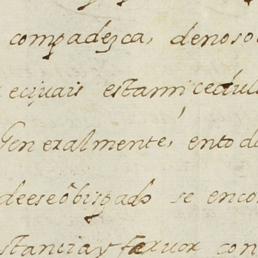 compadezca, denoso
ecivais estami cedul
Generalmente, ento de
deese obligado se enco
stancia y fervor con